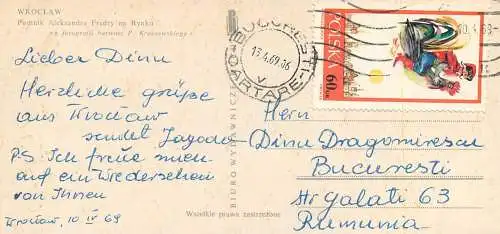 WROCŁAW
Pomnik Aleksandra Fredry na Rynku
Lieber Dinu
Herzliche grüße
aus Wrocław
sendet Jagoda
PS Ich freue mich
auf ein Wiedersehen
von Ihnen
Wrocław, 10 IV 69
BIURO WYDAWNICZE
Wszelkie prawa zastrzeżone
BUCUREȘTI
13.4.69.06
V
CARTARE-I
POLSKA
60 GR
10.4.69
Herrn
Dinu Dragomirescu
Bucuresti
str Galati 63
Rumunia